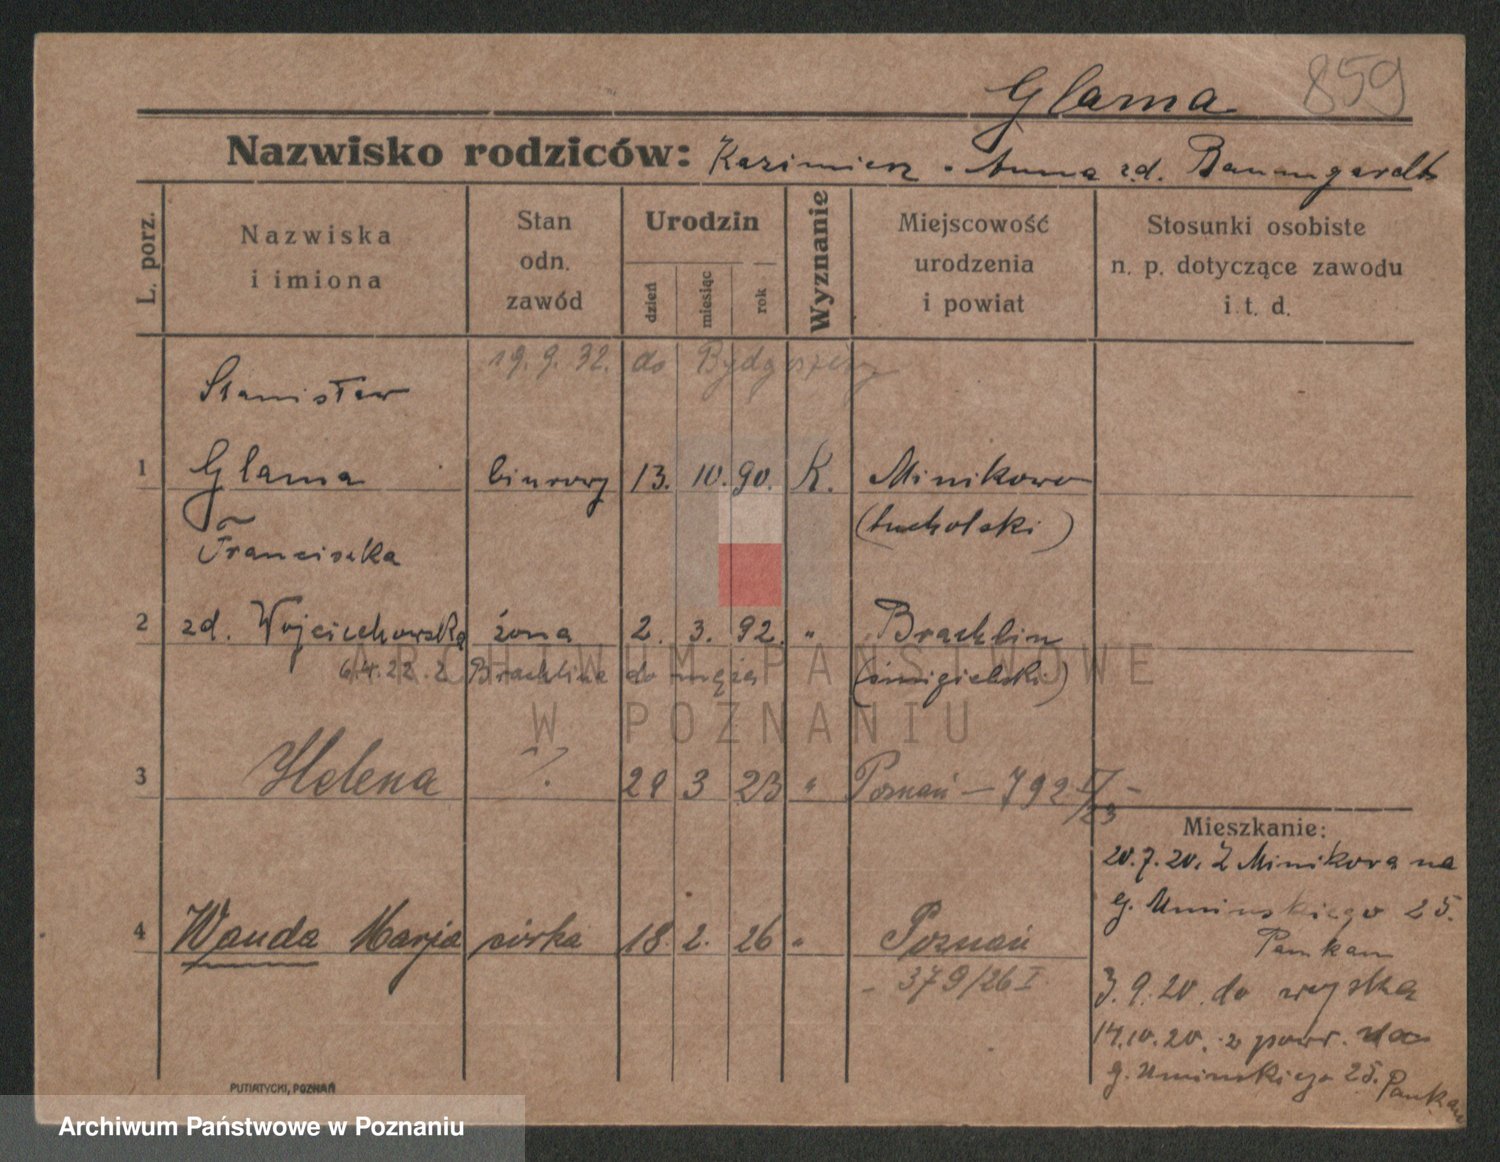 Glama 859
Nazwisko rodziców: Kazimierz - Anna zd. Baumgardt
L. porz.
Nazwiska
i imiona
Stan
odn.
zawód
Urodzin
dzień
miesiąc
rok
Wyznanie
Miejscowość
urodzenia
i powiat
Stosunki osobiste
n. p. dotyczące zawodu
i t. d.
19. 9. 32. do Bydgoszczy
Stanisław
1 Glama biurowy 13. 10. 90. K. Minikowo
(tucholski)
Franciszka
2 zd. Wojciechowska żona 2. 3. 92. " Bracklin
6.4.22. z Bracklina do męża (śmigielski)
ARCHIWUM PAŃSTWOWE
W POZNANIU
3 Helena ·/. 29 3 23 " Poznań — 792 I/23
4 Wanda Marja córka 18. 2. 26 " Poznań
- 379/26 I
Mieszkanie:
20.7.20. Z Minikowa na
g. Umińskiego 25.
3.9.20. do wojska
14.10.20. z powr. na
g. Umińskiego 25.
PUTIATYCKI, POZNAŃ
Archiwum Państwowe w Poznaniu